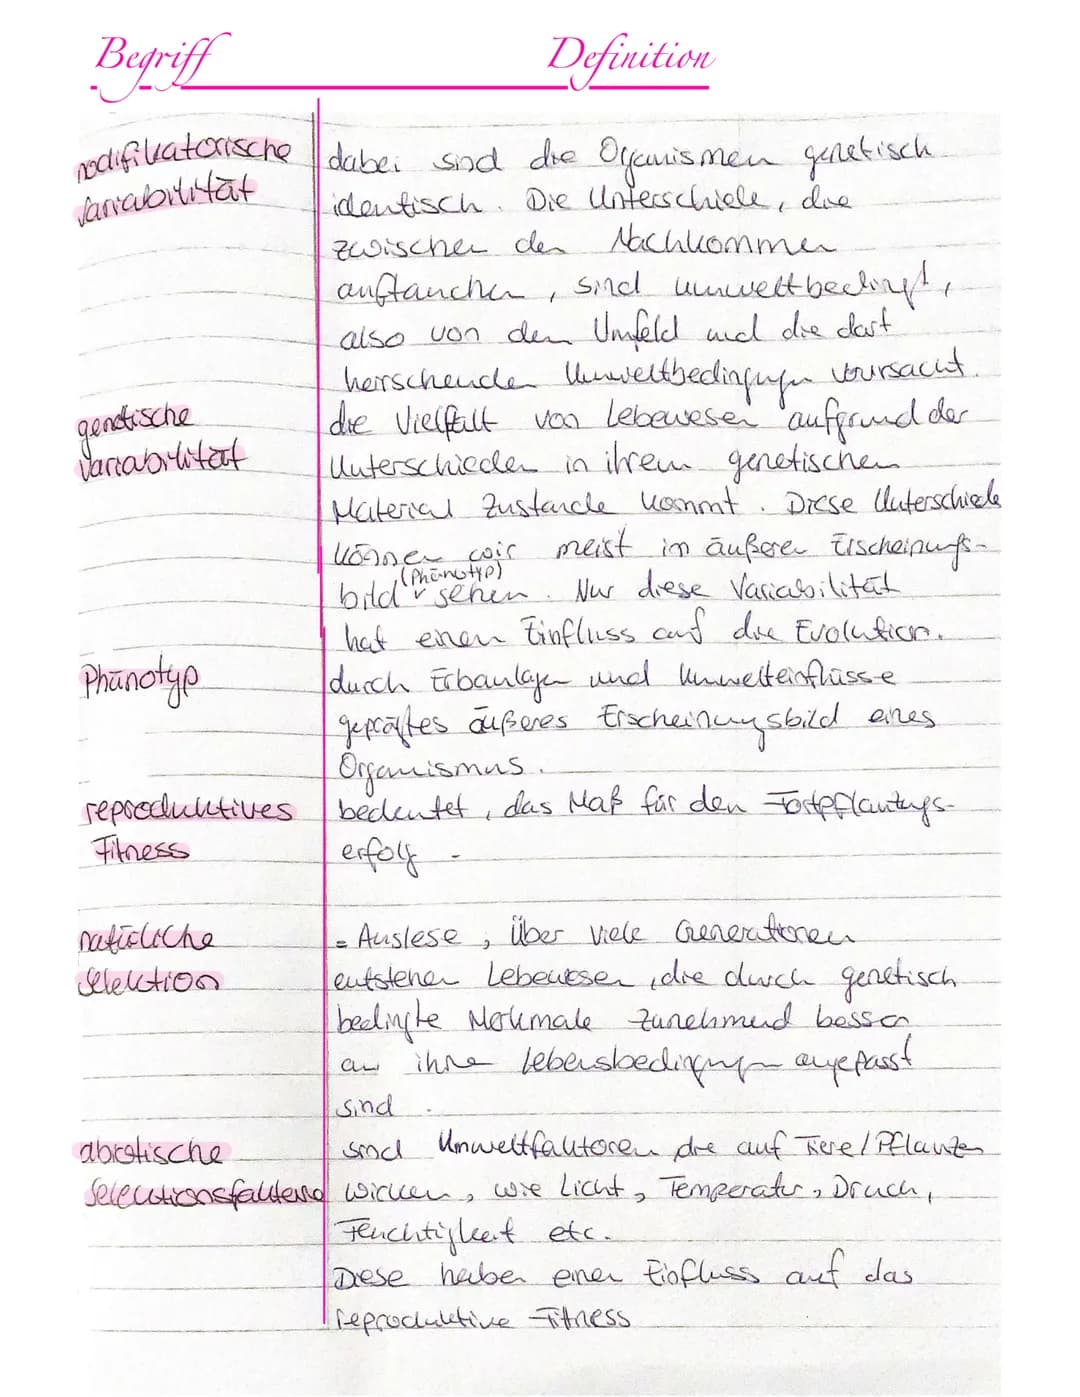 Begriff Definition
modifikatorische dabei sind die Organismen genetisch
Variabilität identisch. Die Unterschiede, die
zwischen den Nachkommen
auftauchen, sind umweltbedingt,
also von dem Umfeld und die dort
herrschenden Umweltbedingungen verursacht.
genetische die Vielfalt von Lebewesen aufgrund der
Variabilität Unterschieden in ihrem genetischen
Material Zustande kommt. Diese Unterschiede
können wir meist im äußeren Erscheinungs-
(Phänotyp)
bild sehen. Nur diese Variabilität
hat einen Einfluss auf die Evolution.
Phänotyp durch Erbanlagen und Umwelteinflüsse
geprägtes äußeres Erscheinungsbild eines
Organismus.
reproduktives bedeutet, das Maß für den Fortpflanzungs-
Fitness erfolg.
natürliche = Auslese, Über viele Generationen
Selektion entstehen Lebewesen, die durch genetisch
bedingte Merkmale zunehmend besser
an ihre Lebensbedingungen angepasst
sind.
abiotische sind Umweltfaktoren die auf Tiere/Pflanzen
Selektionsfaktoren wirken, wie Licht, Temperatur, Druck,
Feuchtigkeit etc.
Diese haben einen Einfluss auf das
reproduktive Fitness